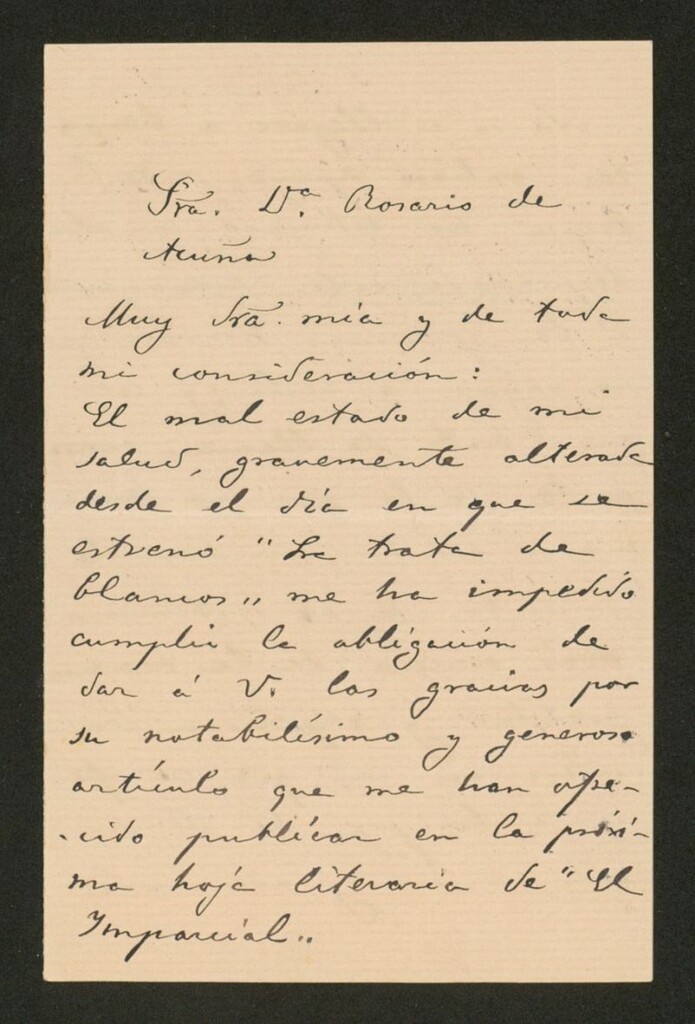 Sra. Dª. Rosario de
Acuña
Muy Sra. mía y de toda
mi consideración:
El mal estado de mi
salud, gravemente alterada
desde el día en que se
estrenó "La trata de
blancos" me ha impedido
cumplir la obligación de
dar á V. las gracias por
su notabilísimo y generoso
artículo que me han ofre-
-cido publicar en la próxi-
ma hoja literaria de "El
Imparcial"